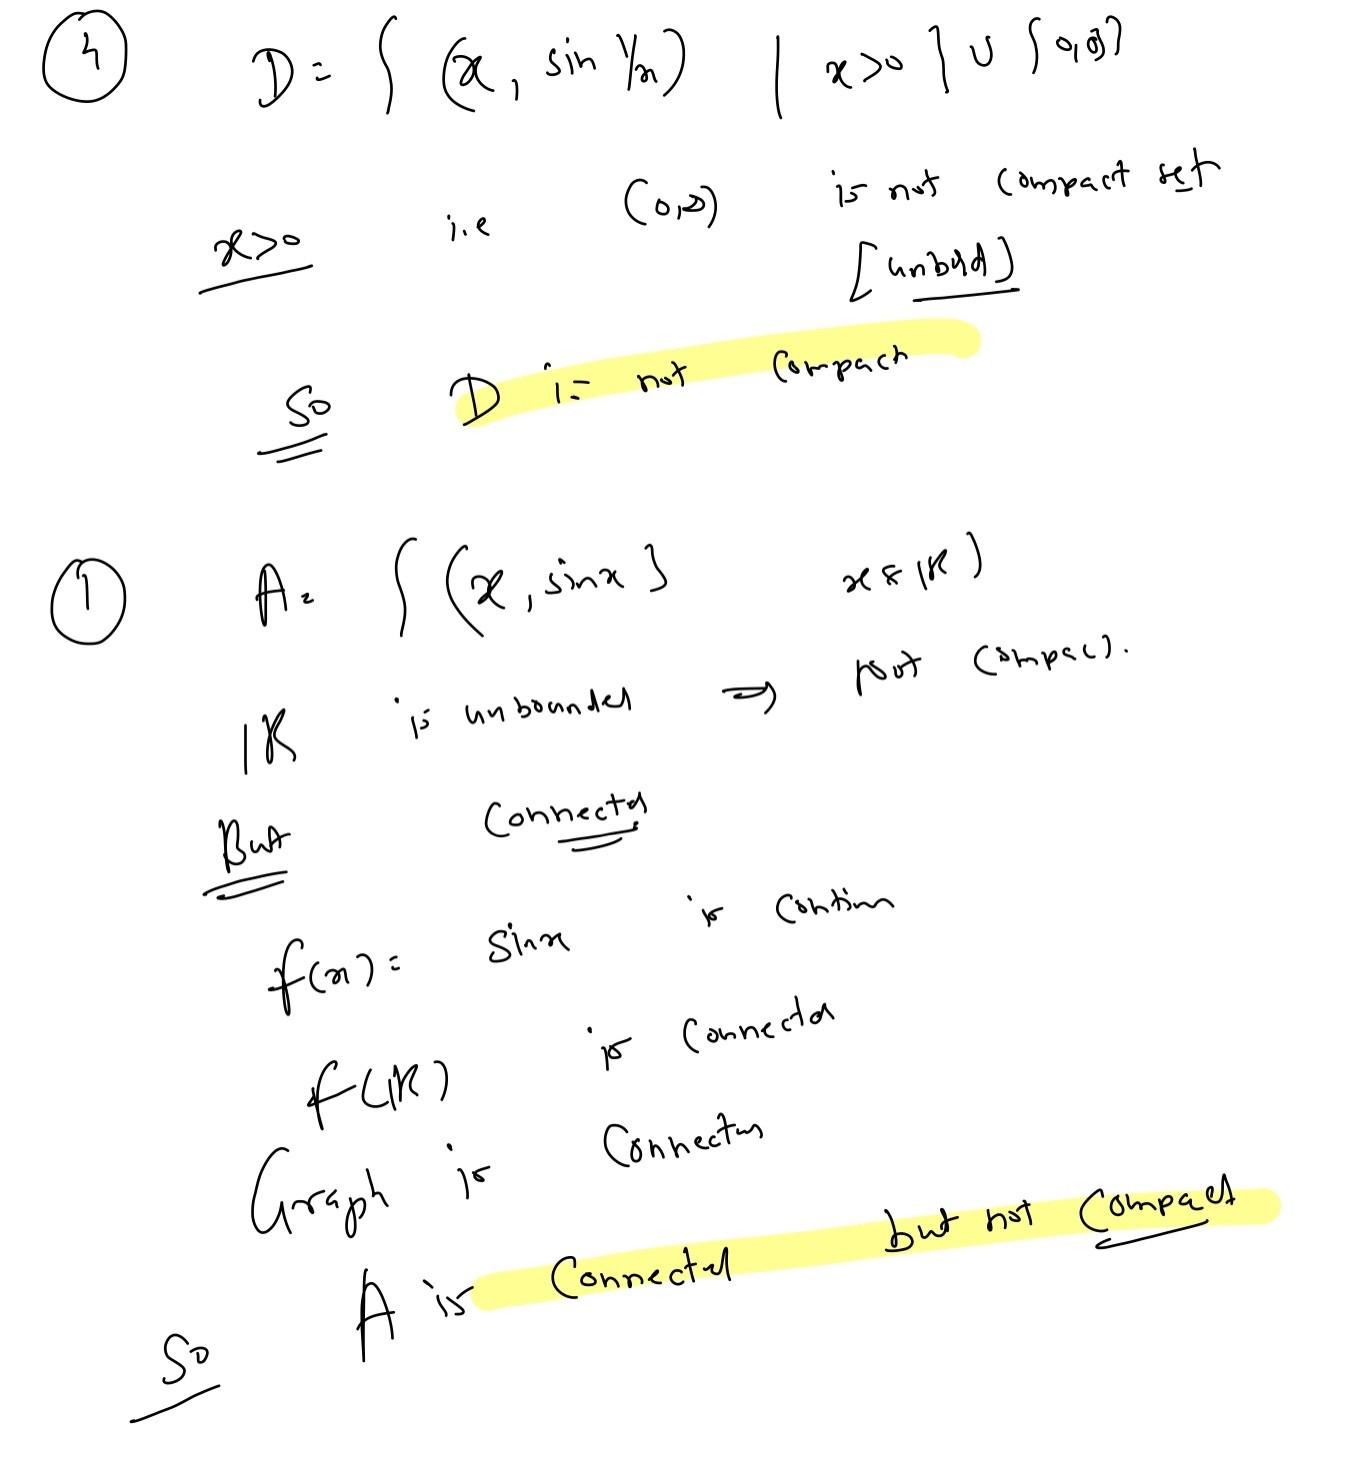 ④ D = { (x, sin 1/x) | x>0 } ∪ {0,0}
x>0 i.e (0,∞) is not compact set
[unbdd]
So D is not compact
① A = { (x, sinx } x ∈ ℝ )
ℝ is unbounded ⇒ not compact.
But Connected
f(x) = Sinx is contin
f(ℝ) is connected
Graph is Connected
So A is Connected but not Compact